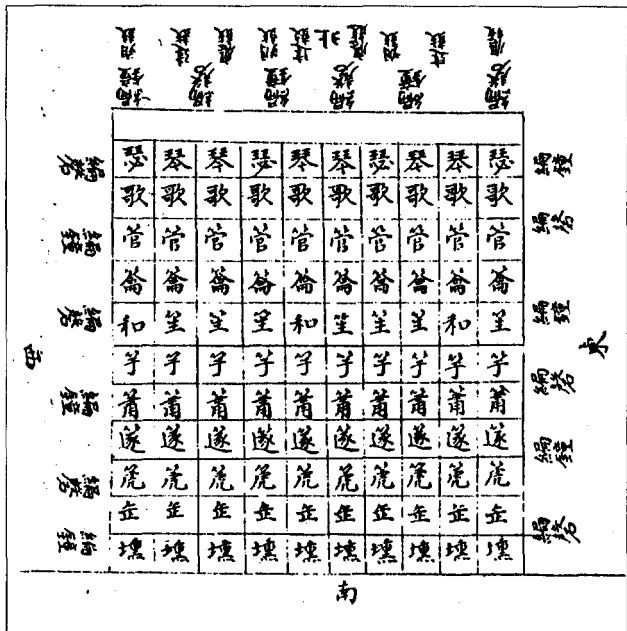 朔鼓 建鼓 應鼓 朔鼓 建鼓 北 應鼓 朔鼓 建鼓 應鼓
編鐘 編磬 編鐘 編磬 編鐘 編磬
瑟 琴 琴 瑟 琴 琴 瑟 琴 琴 瑟
歌 歌 歌 歌 歌 歌 歌 歌 歌 歌
管 管 管 管 管 管 管 管 管 管
籥 籥 籥 籥 籥 籥 籥 籥 籥 籥
和 笙 笙 笙 和 笙 笙 笙 和 笙
竽 竽 竽 竽 竽 竽 竽 竽 竽 竽
簫 簫 簫 簫 簫 簫 簫 簫 簫 簫
篴 篴 篴 篴 篴 篴 篴 篴 篴 篴
篪 篪 篪 篪 篪 篪 篪 篪 篪 篪
缶 缶 缶 缶 缶 缶 缶 缶 缶 缶
壎 壎 壎 壎 壎 壎 壎 壎 壎 壎
編磬
編鐘
編磬
西
編鐘
編磬
編鐘
編鐘
編磬
編鐘
東
編磬
編鐘
編磬
南